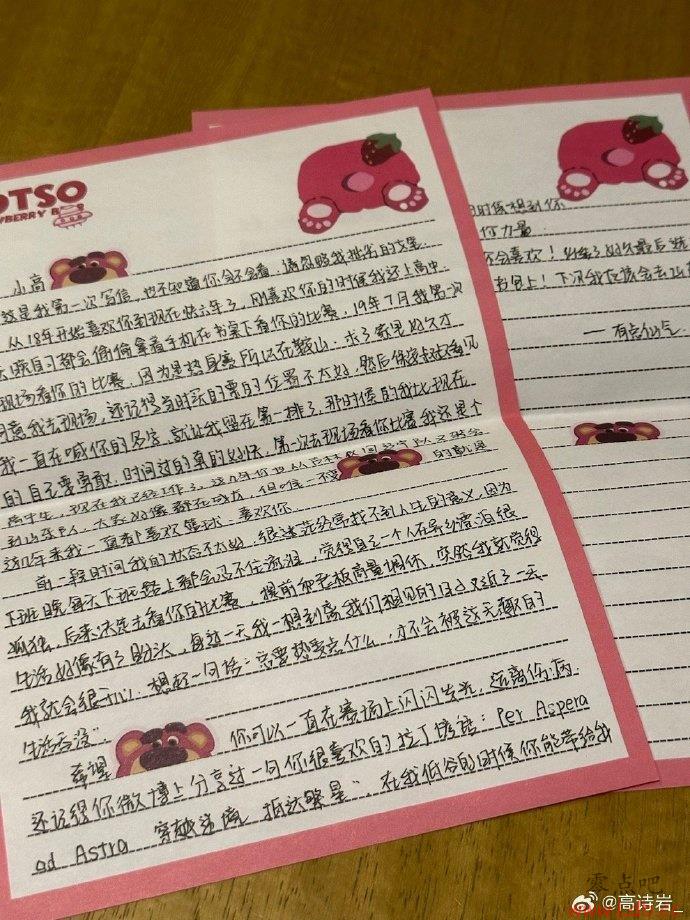 OTSO
小高
这是我第一次写信，也不知道你会不会看，请忽略我拙劣的文笔
从18年开始喜欢你到现在快六年了，刚喜欢你的时候我还上高中
晚自习都会偷偷拿着手机在书桌下看你的比赛，19年7月我第一次
现场看你的比赛，因为是热身赛所以在鞍山，求了家里好久才
同意我去现场，还记得当时买的票的位置不太好，然后保安
我一直在喊你的名字，就让我留在第一排了，那时候的我比现在
的自己要勇敢，时间过的真的好快，第一次去现场看你比赛我还是个
高中生，现在我已经工作了，这几年你也从
到山东队，大家好像都在成长，但唯一不变的就是
这几年来我一直都喜欢篮球、喜欢你
前一段时间我的状态不太好，很迷茫经常找不到人生的意义，因为
下班晚每天下班路上都会忍不住流泪，觉得自己一个人在异乡漂泊很
孤独，后来决定去看你的比赛，提前和老板商量调休，突然我就觉得
生活好像有了盼头，每过一天我一想到离我们相见的日子又近了一天
我就会很开心，想起一句话：总要热爱点什么，才不会被这无趣的
生活吞没”
希望 你可以一直在赛场上闪闪发光，远离伤病
还记得你微博上分享过一句你很喜欢的拉丁谚语：Per Aspera
ad Astra 穿越逆境，抵达繁星”，在我低谷的时候你能带给我
的时候想到你
力量
不会喜欢！
书包上！下次我应该会去
零点吧
@高诗岩_